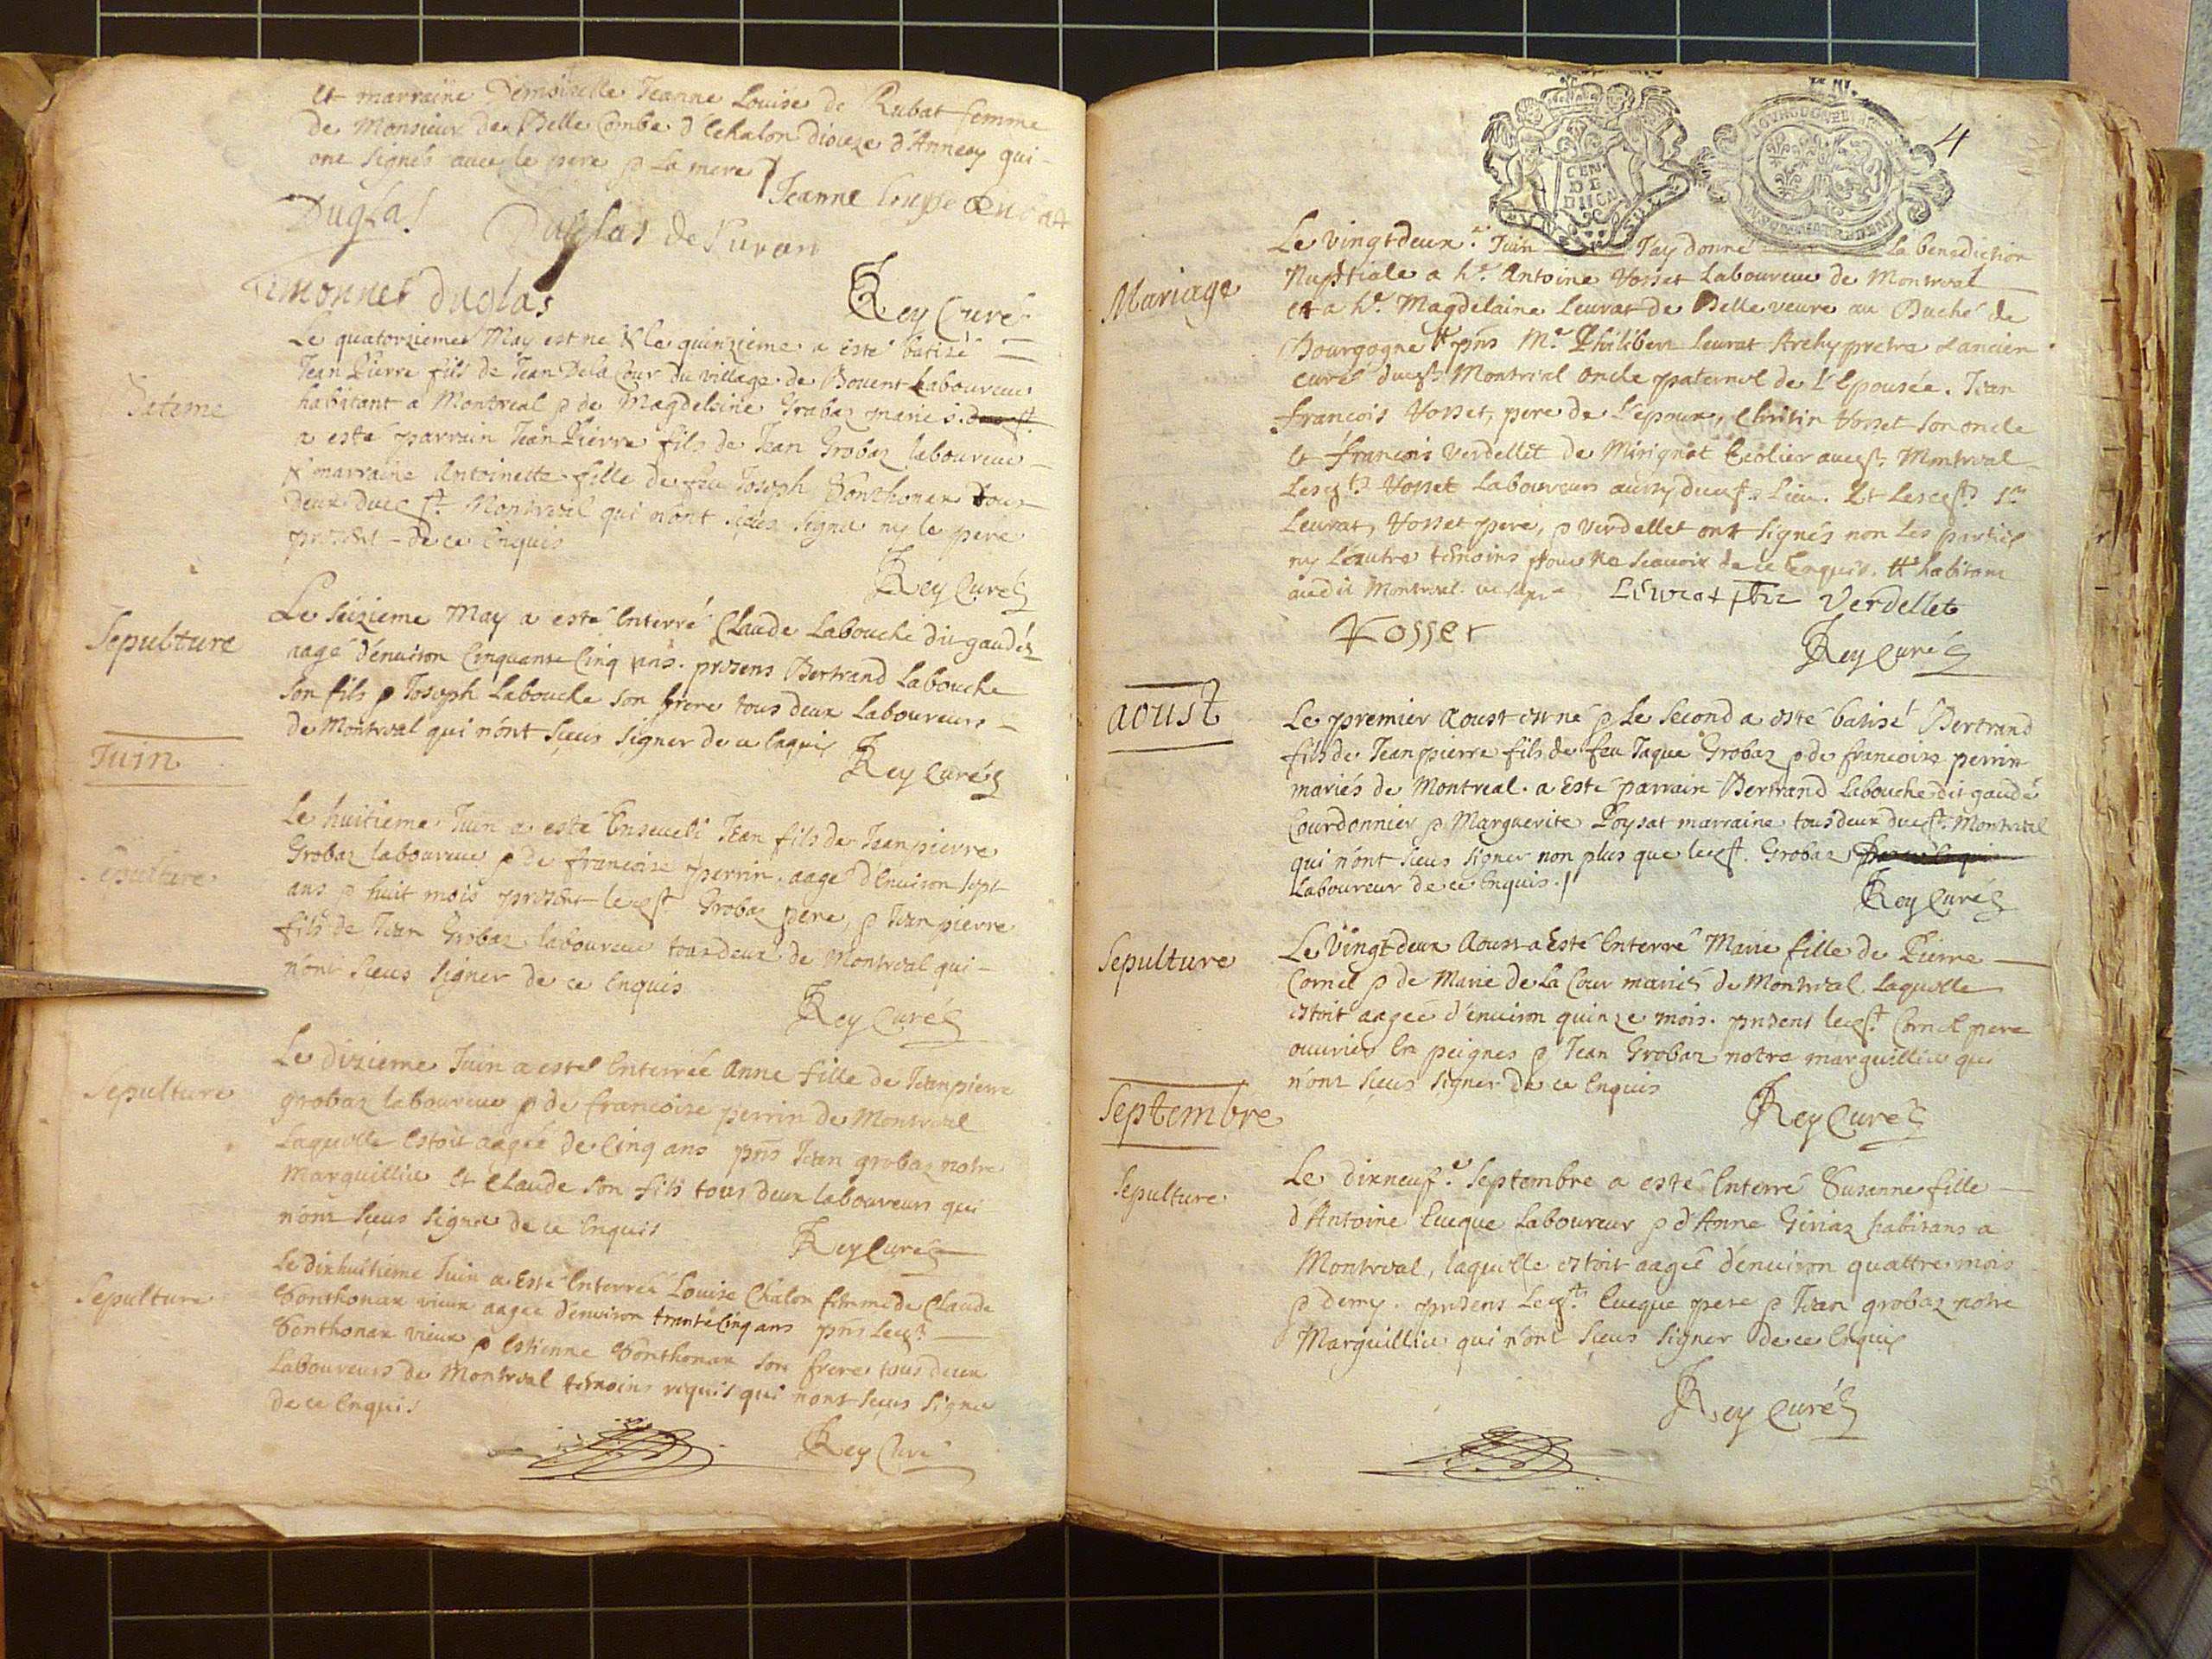 et marraine Demoiselle Jeanne Louise de Rubat femme
de Monsieur de Belle Combe d'Echalon dioceze d'Annecy qui
ont signés avec le pere & la mere
Jeanne Rubat
Dugla!
Duglas de
duglas
Rey Curé
Le quatorzieme May est né & le quinzieme a esté batisé
Jean Pierre fils de Jean Dela Cour du village de Bouent Laboureur
habitant a Montreal & de Magdeleine Grobaz mariés.
Bateme
a esté parrain Jean Pierre fils de Jean Grobaz laboureur
& marraine Antoinette fille de feu Joseph Sonthonax tous
deux Montreal qui n'ont sceus signer ny le pere
present de ce Enquis
Rey Curé
Sepulture
Le seizieme May a esté Enterré Claude Labouche dit gaudéz
aagé d'enuiron Cinquante Cinq ans. prezens Bertrand Labouche
son fils & Joseph Labouche son frere tous deux Laboureurs
de Montreal qui n'ont sceus signer de ce Enquis
Rey Curé
Juin
Sepulture
Le huitieme Juin a esté Enseueli Jean fils de Jeanpierre
Grobaz laboureur & de francoise perrin. aagé d'Enuiron sept
ans & huit mois present Grobaz pere, & Jeanpierre
fils de Jean Grobaz laboureur tous deux de Montreal qui
n'ont sceus signer de ce Enquis
Rey Curé
Sepulture
Le dizieme Juin a esté Enterrée Anne fille de Jeanpierre
grobaz laboureur & de francoise perrin de Montreal
Laquelle Estoit aagée de Cinq ans pns Jean grobaz notre
Marguillier Et Claude son fils tous deux laboureurs qui
n'ont sceus signer de ce Enquis
Rey Curé
Sepulture
Le dixhuitieme Juin a Esté Enterrée Louise Chalon femme de Claude
Sonthonax vieux aagée d'enuiron trante Cinq ans pns
Sonthonax vieux & Estienne Sonthonax son frere tous deux
Laboureurs de Montreal temoins requis qui n'ont sceus signer
de ce Enquis
Rey Curé
4
GEN.
DE
DIION
Mariage
Le vingtdeux.e Juin J'ay donné La benediction
Nuptiale a h.e Antoine Vosset Laboureur de Montreal
et a h.e Magdelaine Leurat de Belleveure au Duché de
Bourgogne pns M.e Philibert Leurat Archypretre & ancien
curé Montreal Oncle paternel de L'Epousée. Jean
francois Vosset, pere de l'epoux, Vosset son oncle
Et francois Verdellet de Mirignat Ecolier Montreal
Vosset Laboureurs aussy Lieu. Et S.rs
Leurat, Vosset pere, & Verdellet ont signés non Les parties
ny L'autre temoins pour ne scauoir de ce Enquis. habitant
audit Montreal. Verdellet
Vosset
Rey Curé
aoust
Le premier Aoust est né & Le second a esté batisé Bertrand
fils de Jeanpierre fils de feu Jaque Grobaz & de francoise perrin
mariés de Montreal. a Esté parrain Bertrand Labouche dit gaudé
Courdonnier & Marguerite Poysat marraine tous deux Montreal
qui n'ont sceus signer non plus que Grobaz
Laboureur de ce Enquis.
Rey Curé
Sepulture
Le Vingtdeux Aoust a Esté Enterré Marie fille de Pierre
Cornet & de Marie de La Cour mariés de Montreal. Laquelle
estoit aagée d'enuiron quinze mois. prezens Cornet pere
ouurier En peignes & Jean Grobaz notre marguillier qui
n'ont sceus signer de ce Enquis
Rey Curé
Septembre
Sepulture
Le dixneuf.e Septembre a esté Enterré Susanne fille
d'Antoine Eueque Laboureur & d'Anne Giriaz habitans a
Montreal, laquelle estoit aagée d'enuiron quattre mois
& demy. prezens Eueque pere & Jean grobaz notre
Marguillier qui n'ont sceus signer de ce Enquis
Rey Curé